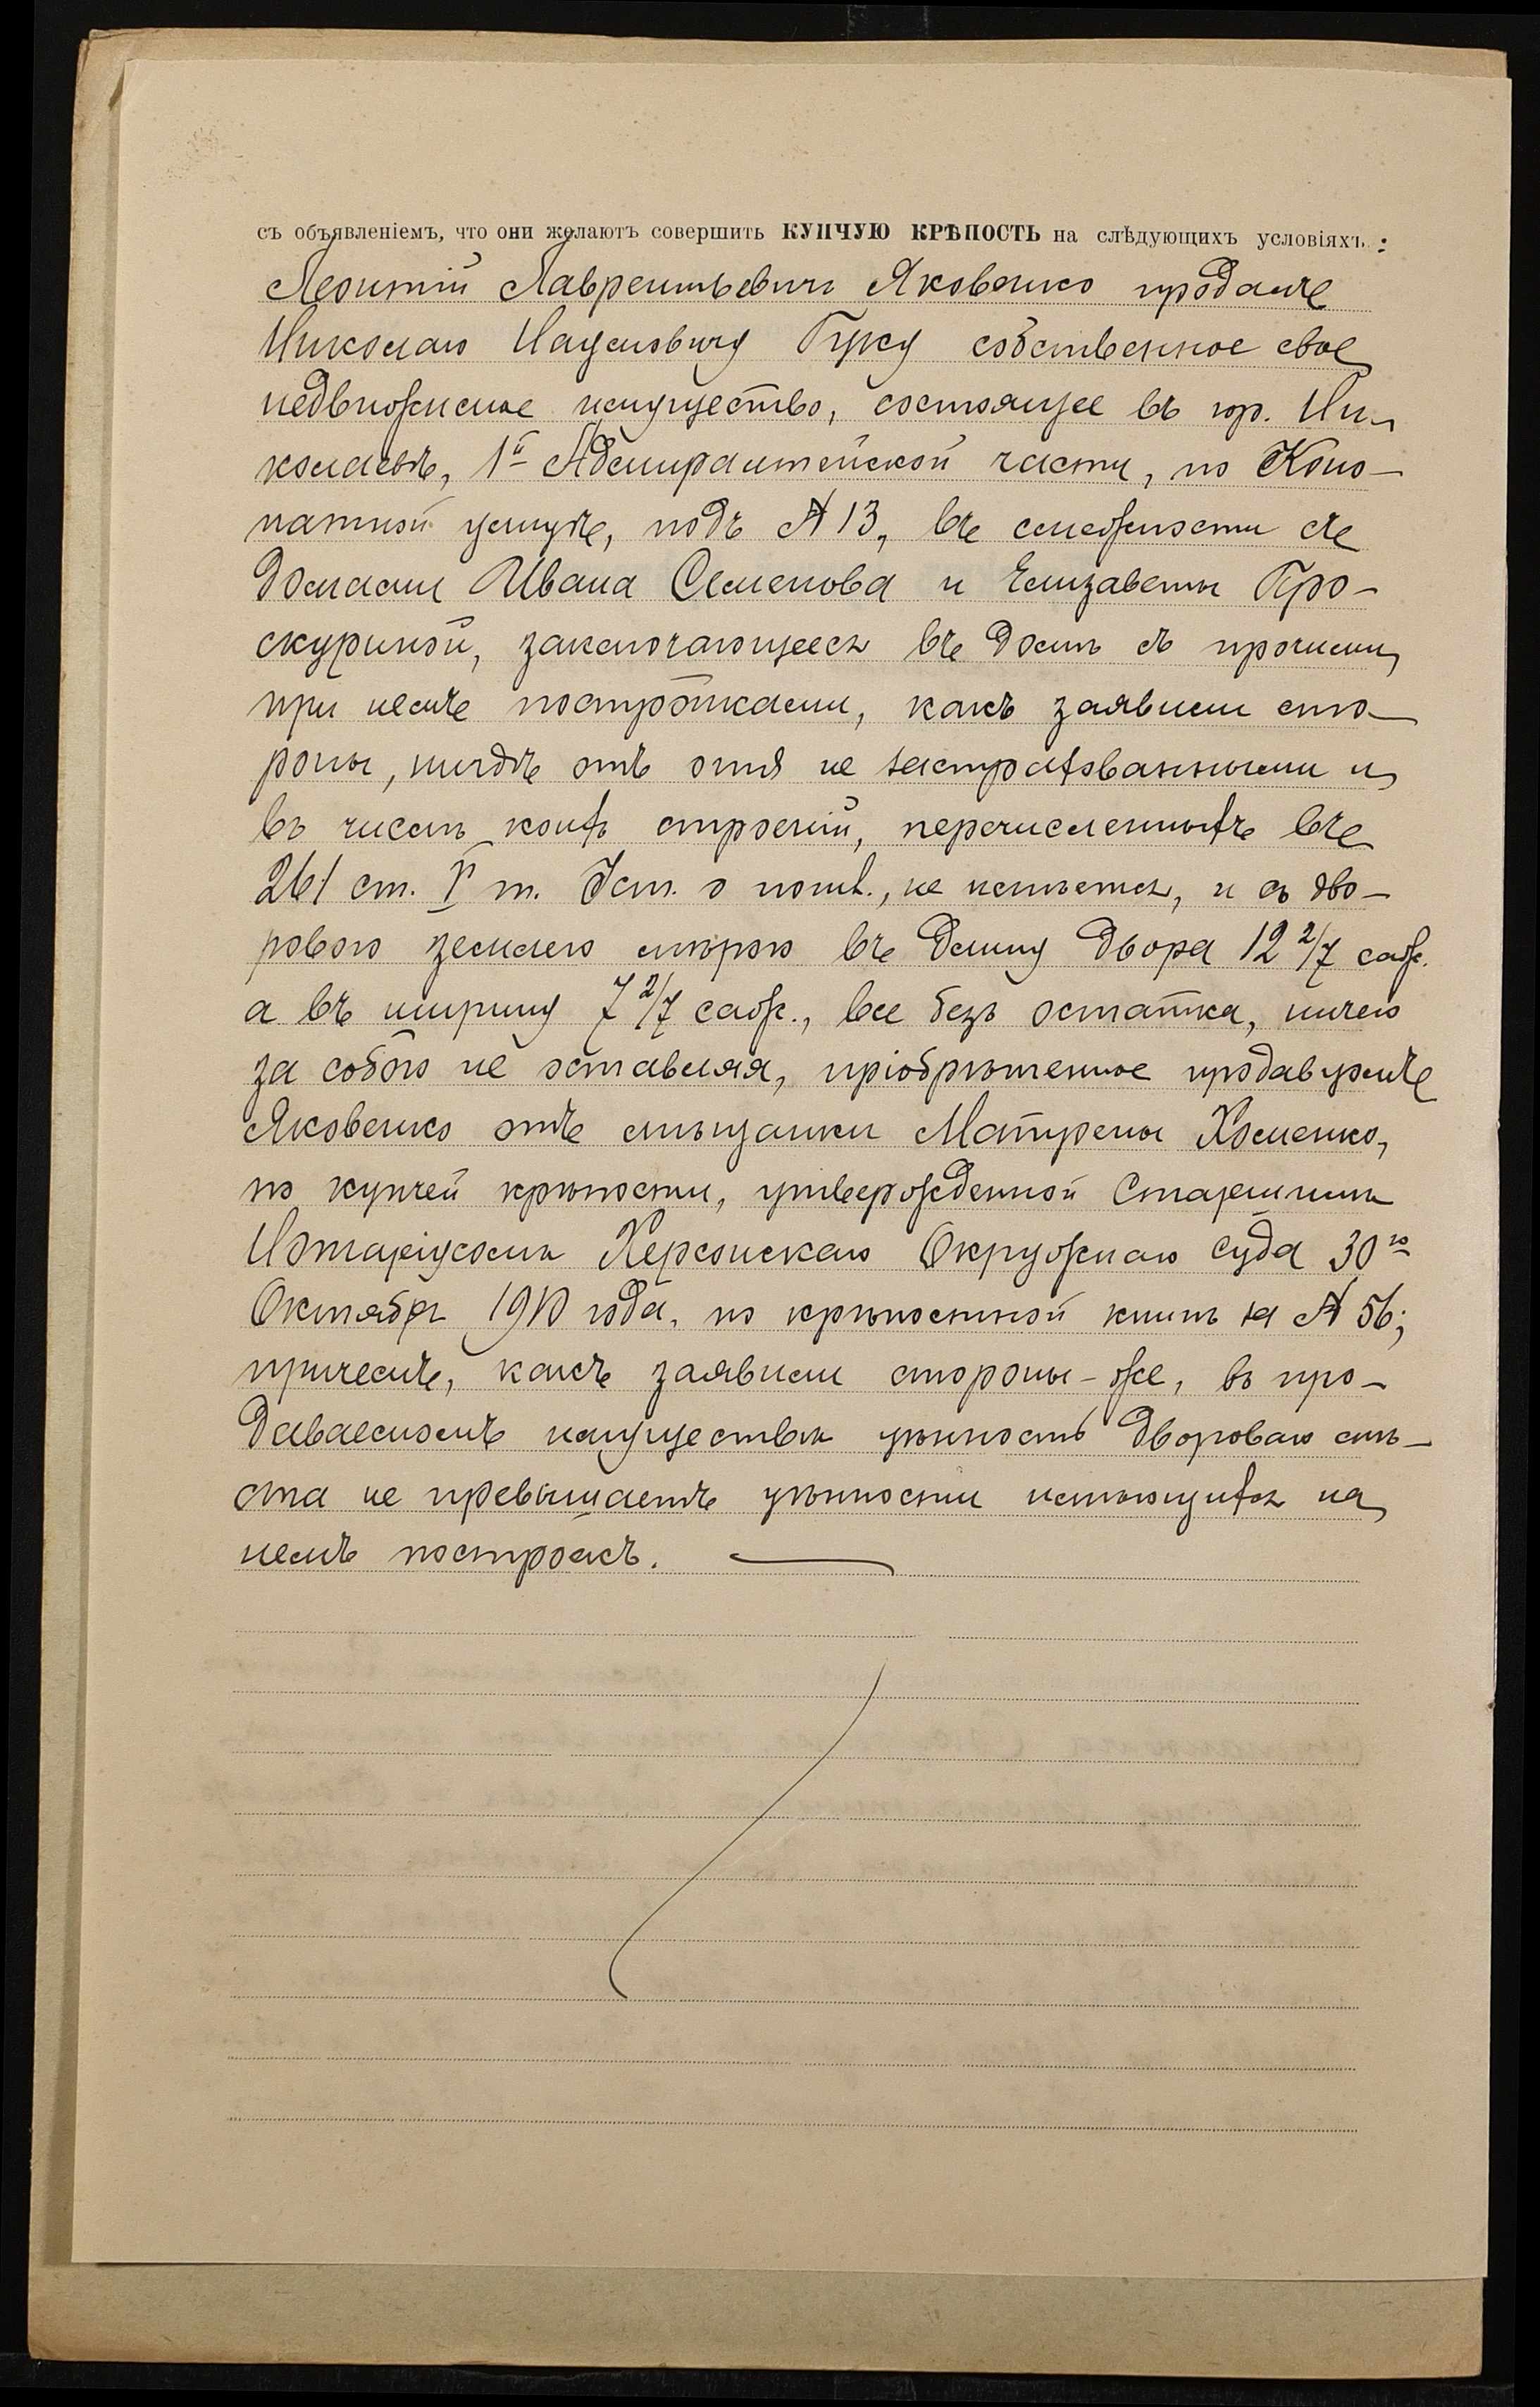 съ объявленіемъ, что они желаютъ совершить КУПЧУЮ КРѢПОСТЬ на слѣдующихъ условіяхъ:
Леонтій Лаврентьевичъ Яковенко продалъ
Николаю Наумовичу Гуку собственное свое
недвижимое имущество, состоящее въ гор. Ни-
колаевѣ, 1й Адмиралтейской части, по Коно-
патной улицѣ, подъ № 13, въ смежности съ
домами Ивана Семенова и Елизаветы Про-
скуриной, заключающееся въ домѣ съ прочими
при немъ постройками, какъ заявили сто-
роны, нигдѣ отъ огня не застрахованными и
въ числѣ коихъ строеній, перечисленныхъ въ
261 ст. V т. Уст. о пошл., не имѣется, и съ дво-
ровою землею мѣрою въ длину двора 12 2/7 саж.
а въ ширину 7 2/7 саж., все безъ остатка, ничего
за собою не оставляя, пріобрѣтенное продавцемъ
Яковенко отъ мѣщанки Матрены Хоменко,
по купчей крѣпости, утвержденной Старшимъ
Нотаріусомъ Херсонскаго Окружнаго Суда 30го
Октября 1910 года, по крѣпостной книгѣ за № 56;
причемъ, какъ заявили стороны-же, въ про-
даваемомъ имуществѣ цѣнность двороваго мѣ-
ста не превышаетъ цѣнности имѣющихся на
немъ построекъ.